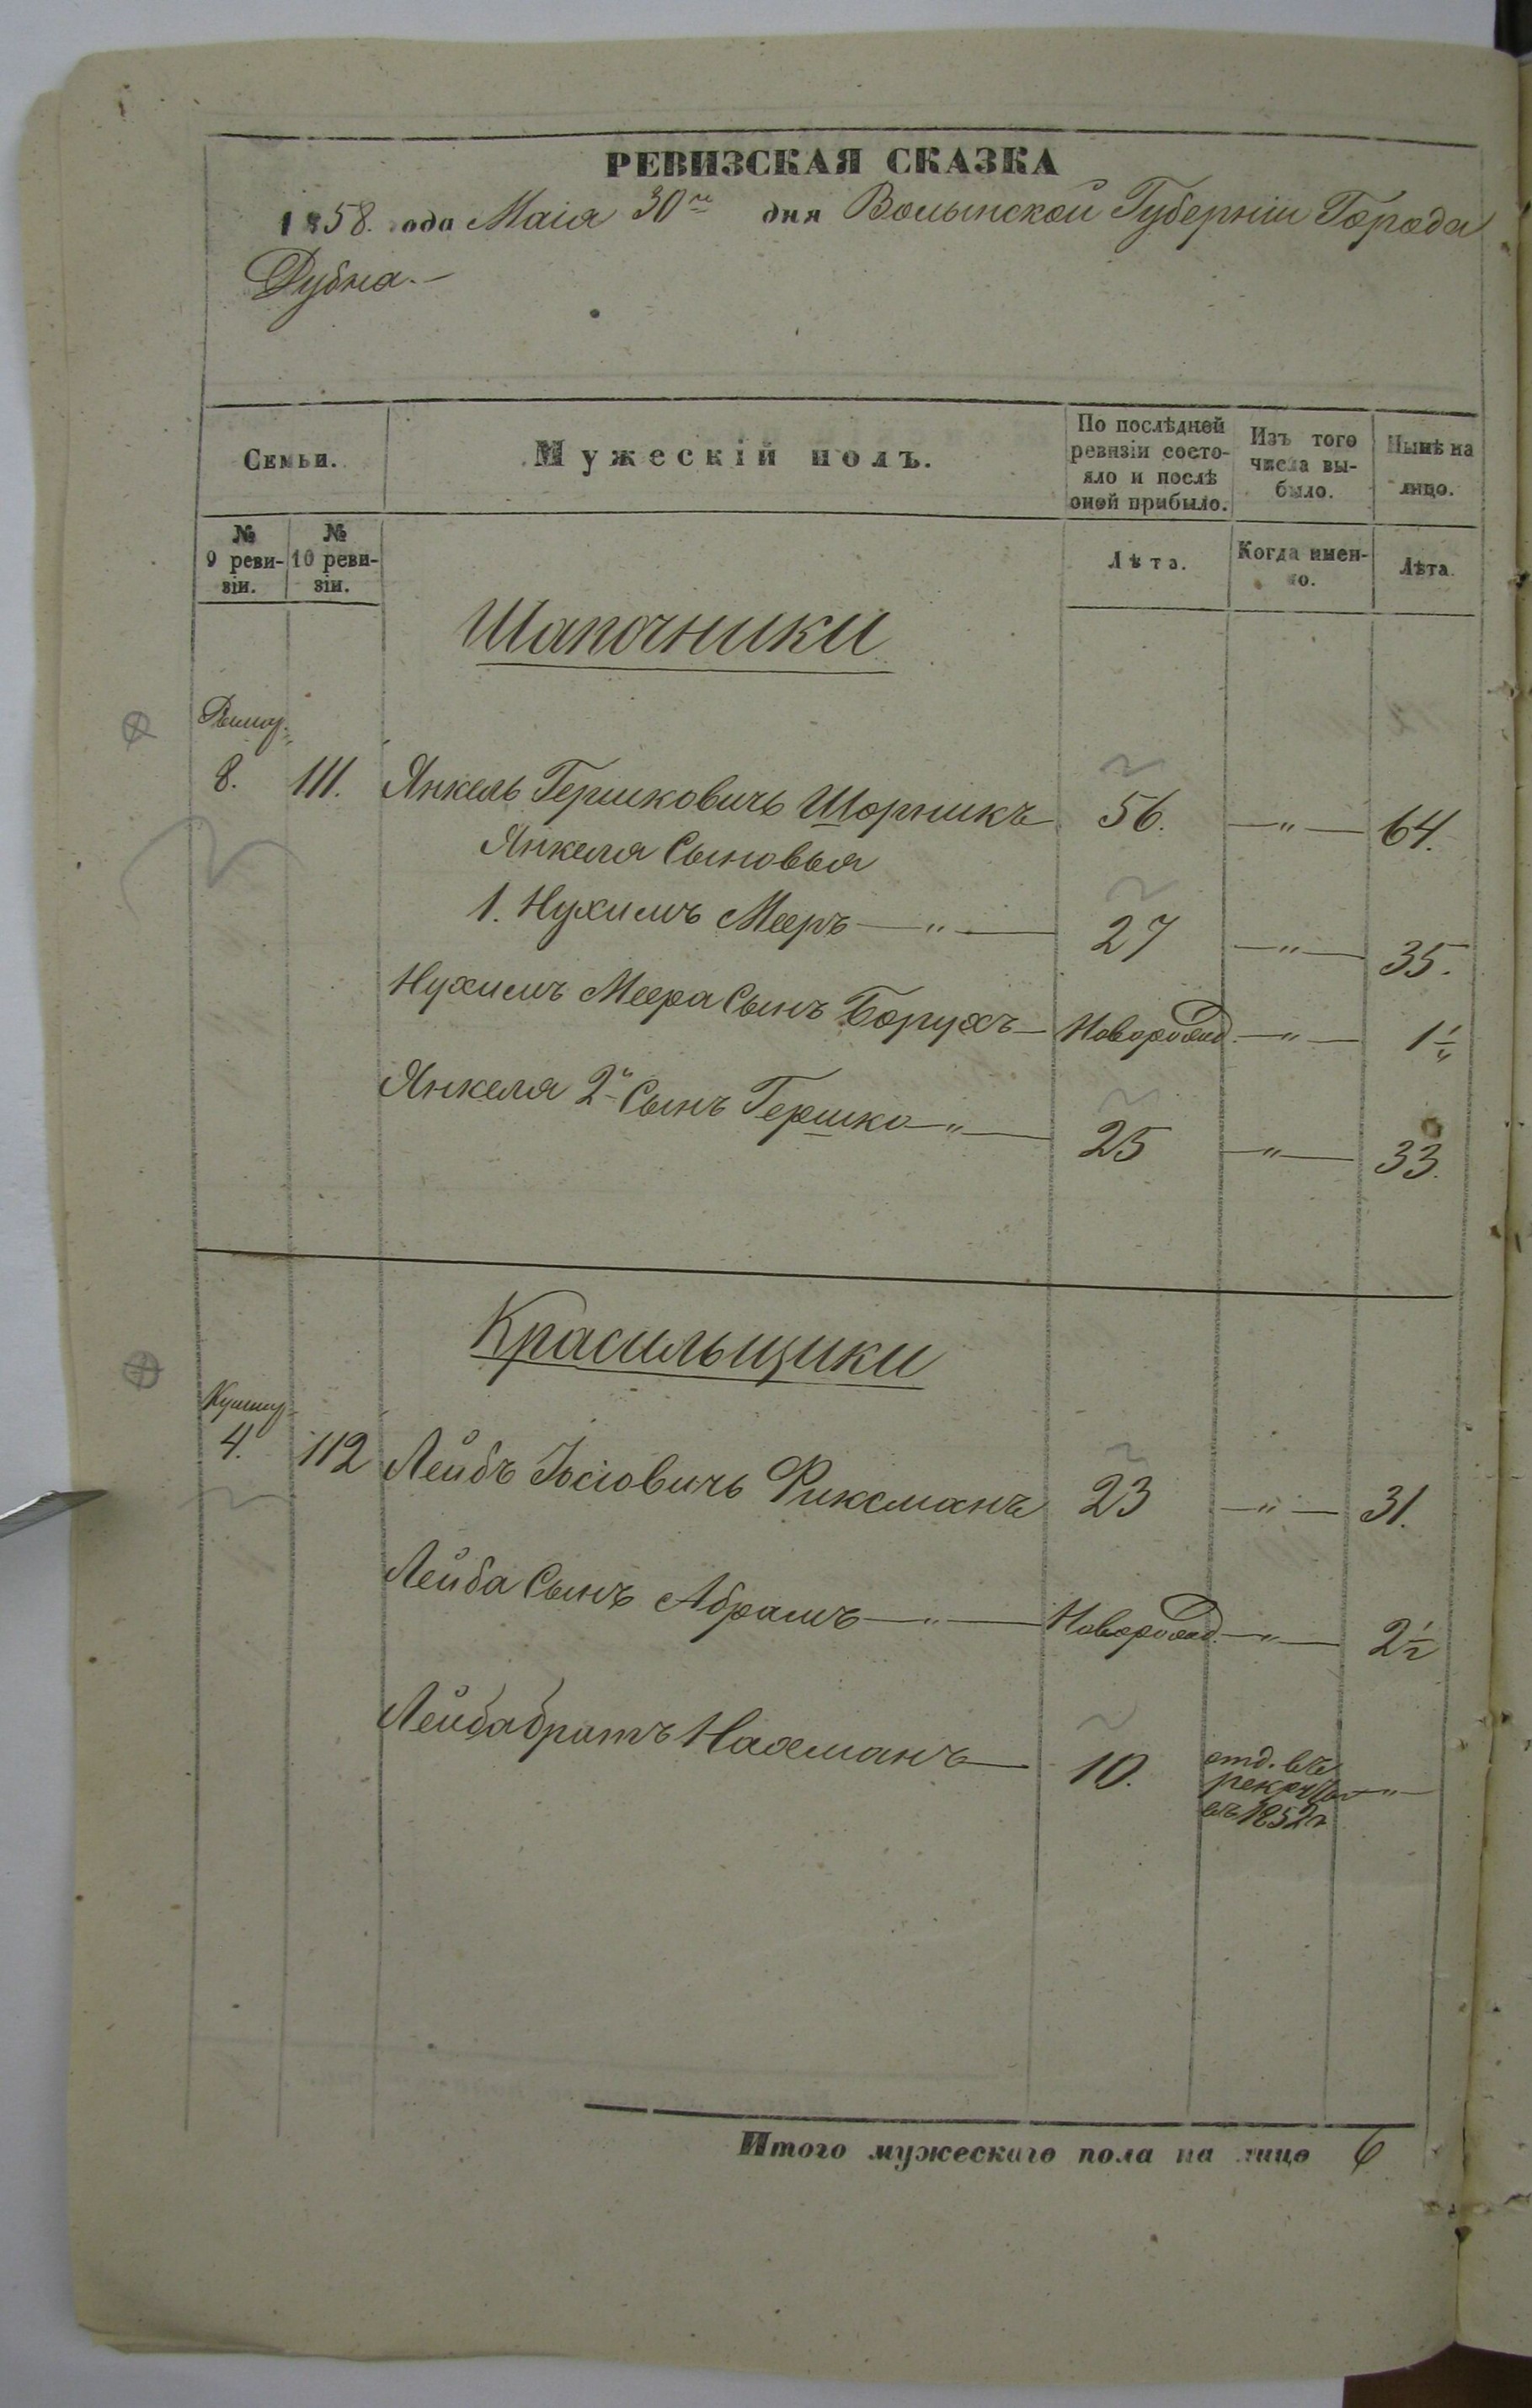 РЕВИЗСКАЯ СКАЗКА
1858. года Маія 30го дня Волынской Губерніи Города
Дубна.—
Семьи.
Мужескій полъ.
По послѣдней ревизіи состо-
яло и послѣ
оной прибыло.
Изъ того
числа вы-
было.
Нынѣ на
лицо.
№
9 реви-
зіи.
№
10 реви-
зіи.
Лѣта.
Когда имен-
но.
Лѣта.
Шапочники
8. 111. Янкель Гершковичъ Шорникъ 56. —„— 64.
Янкеля Сыновья
1. Нухимъ Мееръ —„— 27 —„— 35.
Нухимъ Меера Сынъ Борухъ — Новорожд. —„— 1
Янкеля 2й Сынъ Гершко —„— 25 —„— 33.
Красильщики
4. 112 Лейбъ Іосіовичъ Фиксманъ 23 —„— 31.
Лейба Сынъ Абрамъ —„— Новорожд. —„— 2½
Лейба братъ Нахманъ — 10. отд. въ
рекруты —„—
въ 1852г
Итого мужескаго пола на лицо 6